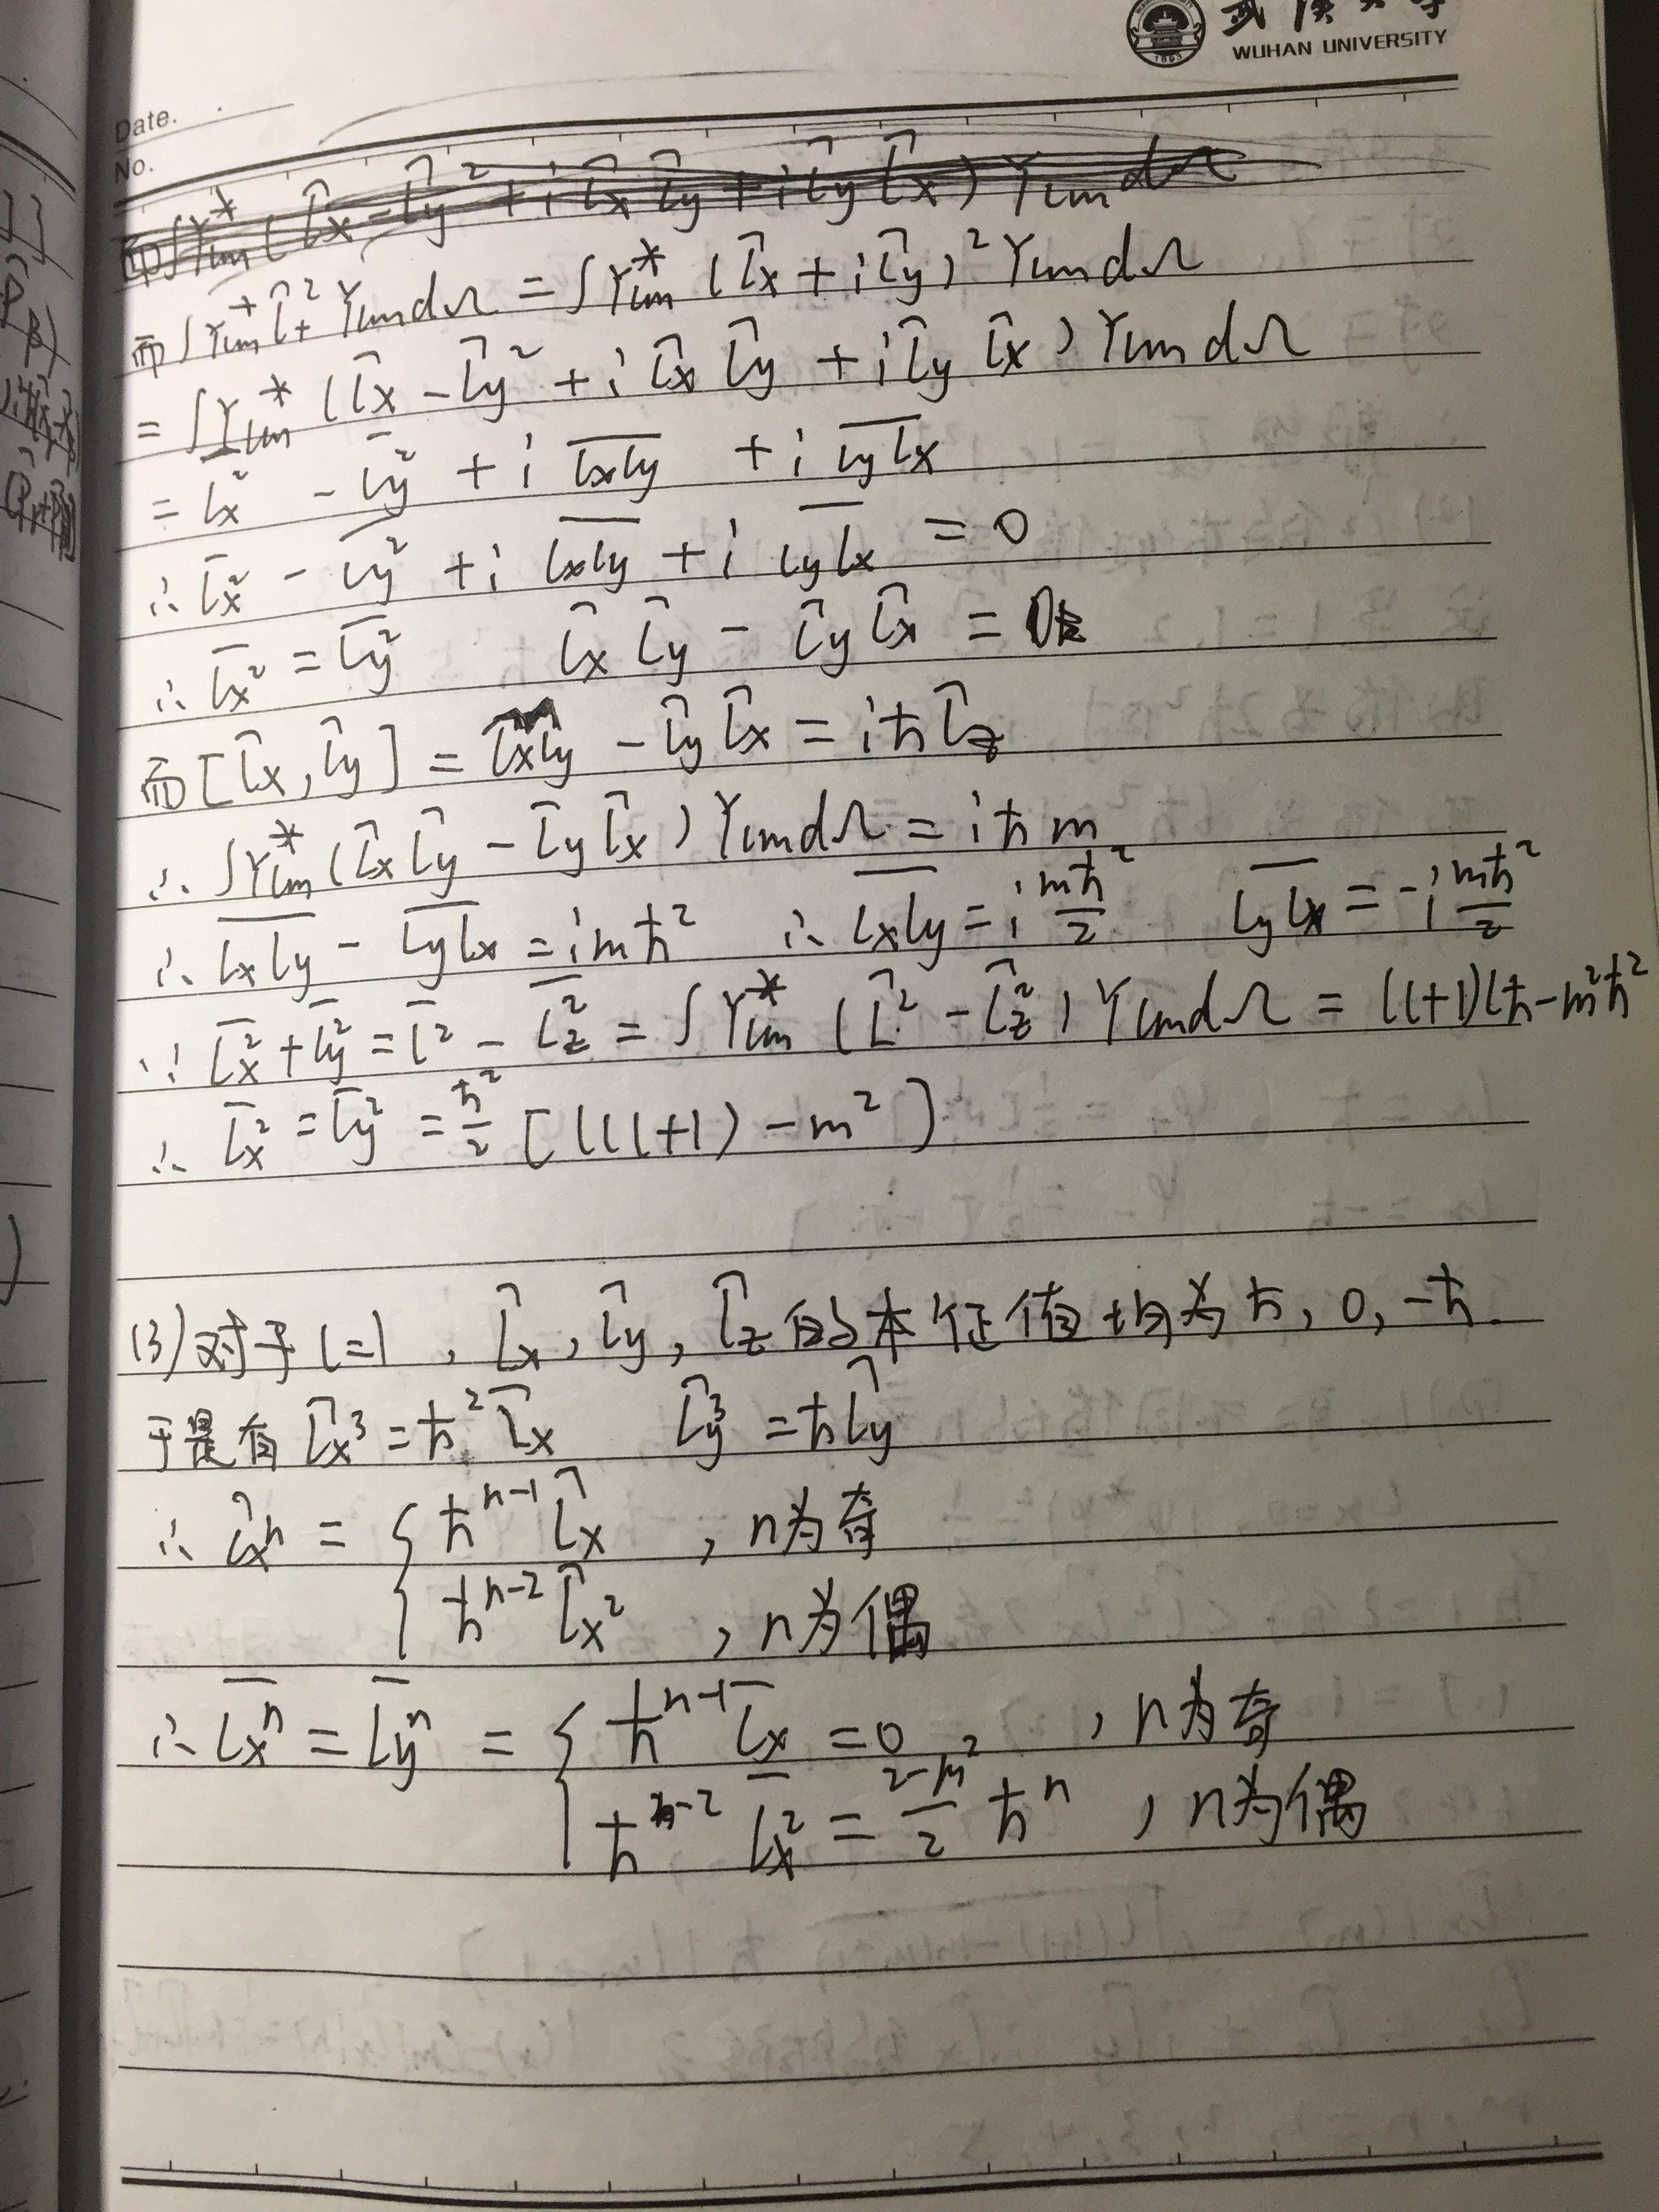 武漢大学
WUHAN UNIVERSITY
Date.
No.
即∫Y*lm(l̂x - l̂y² + i l̂x l̂y + i l̂y l̂x) Ylm dΩ
而∫Y⁺lm l̂₊² Ylm dΩ = ∫Y*lm (l̂x + i l̂y)² Ylm dΩ
= ∫Ylm* (l̂x - l̂y² + i l̂x l̂y + i l̂y l̂x) Ylm dΩ
= lx² - l̄y² + i \overline{lxly} + i \overline{lylx}
∴ l̄x² - l̄y² + i \overline{lxly} + i \overline{lylx} = 0
∴ l̄x² = l̄y²  l̂x l̂y - l̂y l̂x = 0
而[l̂x, l̂y] = l̂x l̂y - l̂y l̂x = iħ l̂z
∴ ∫Ylm* (l̂x l̂y - l̂y l̂x) Ylm dΩ = iħm
∴ \overline{lxly} - \overline{lylx} = imħ²  ∴ \overline{lxly} = i mħ²/2  \overline{lylx} = -i mħ²/2
∵ l̄x² + l̄y² = l̄² - l̄z² = ∫Ylm* (l̂² - l̂z²) Ylm dΩ = l(l+1)lħ - m²ħ²
∴ l̄x² = l̄y² = ħ²/2 [l(l+1) - m²]
(3) 对于 l=1, l̂x, l̂y, l̂z 的本征值均为 ħ, 0, -ħ.
于是有 l̂x³ = ħ² l̂x  l̂y³ = ħ l̂y
∴ l̂xⁿ = { ħⁿ⁻¹ l̂x , n为奇
ħⁿ⁻² l̂x² , n为偶
∴ l̄xⁿ = l̄yⁿ = { ħⁿ⁻¹ l̄x = 0 , n为奇
ħⁿ⁻² l̄x² = (2-m²)/2 ħⁿ , n为偶